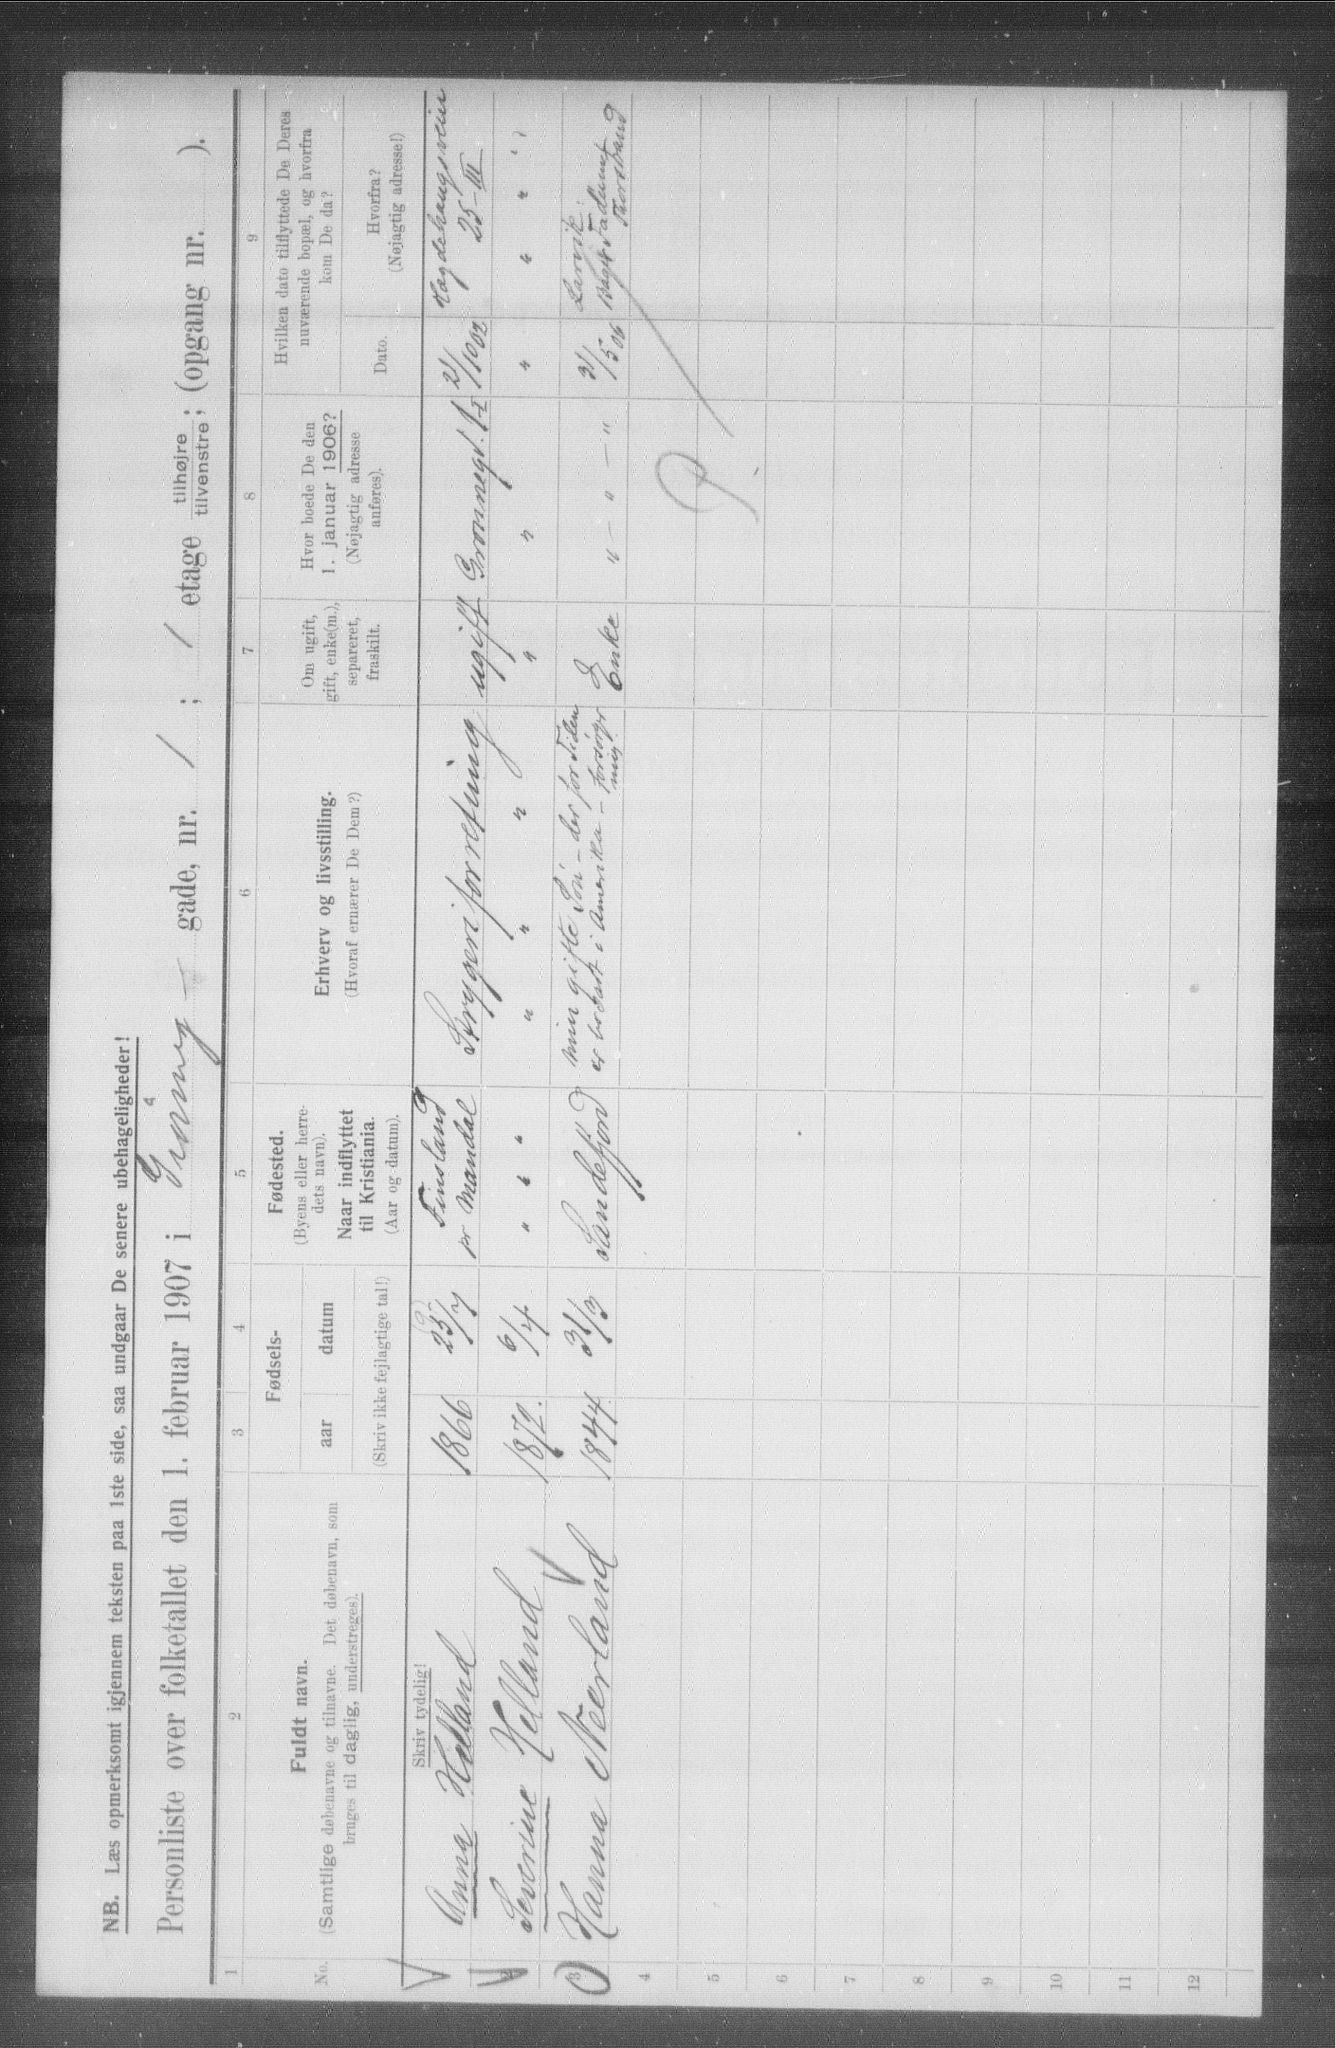 NB. Læs opmerksomt igjennem teksten paa 1ste side, saa undgaar De senere ubehageligheder!
Personliste over folketallet den 1. februar 1907 i Grønneg gade, nr. 1; 1 etage tilhøjre tilvenstre; (opgang nr. ).
1 2 3 4 5 6 7 8 9
No.
Fuldt navn.
(Samtlige døbenavne og tilnavne. Det døbenavn, som
bruges til daglig, understreges).
Fødsels-
aar datum
(Skriv ikke fejlagtige tal!)
Fødested.
(Byens eller herre-
dets navn).
Naar indflyttet
til Kristiania.
(Aar og datum).
Erhverv og livsstilling.
(Hvoraf ernærer De Dem?)
Om ugift,
gift, enke(m.),
separeret,
fraskilt.
Hvor boede De den
1. januar 1906?
(Nøjagtig adresse
anføres).
Hvilken dato tilflyttede De Deres
nuværende bopæl, og hvorfra
kom De da?
Dato.
Hvorfra?
(Nøjagtig adresse!)
Skriv tydelig!
1 Anna Helland 1866 25/7 Finsland pr Mandal Strygeriforretning ugift Grønnegd. 1 I 2/10 02 Hægdehaugsveien 25-III
2 Severine Helland 1872. 6/4 " " " " " " " " " " "
3 Hanna Neerland 1844. 31/3 Sandefjord min gifte Søn - der for Tiden
er bosat i Amerika - forsørger mig. Enke " - " - " 31/5 06 Larvik.
Thorstrand
4
5
6
7
8
9
10
11
12